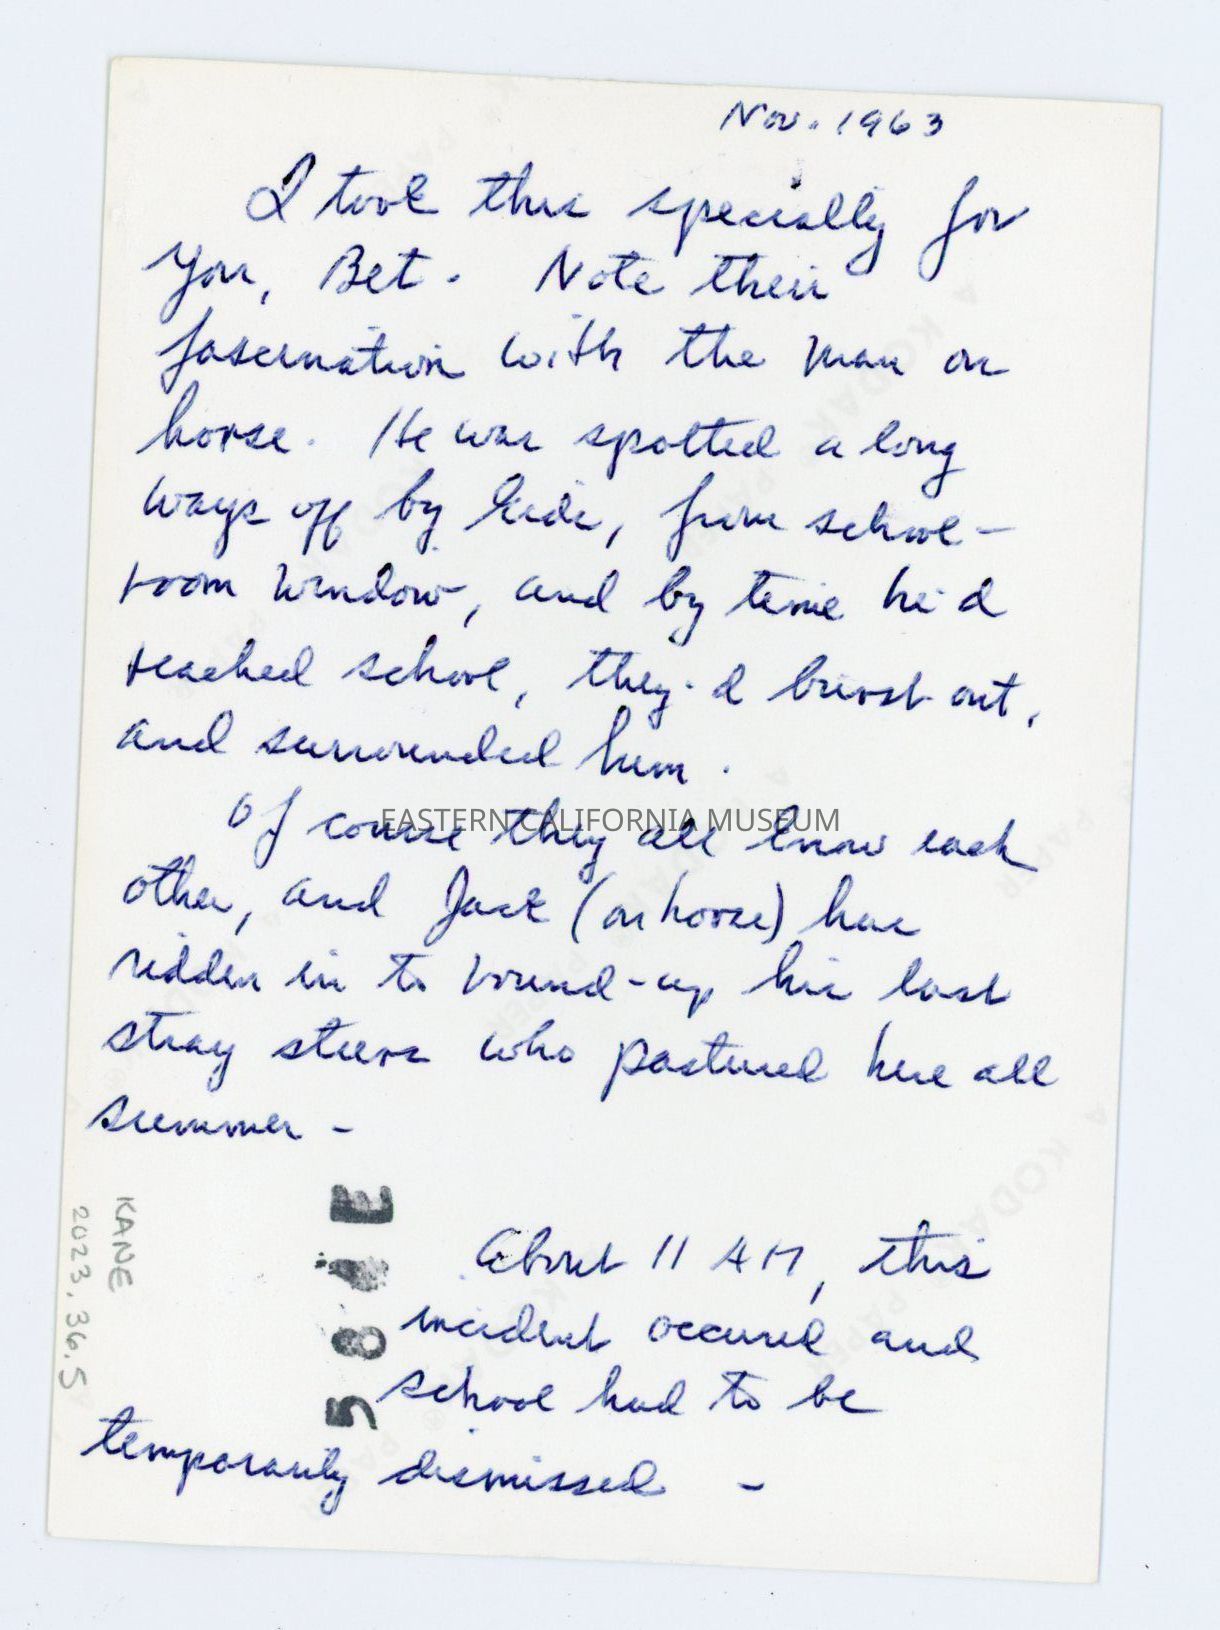 Nov. 1963
I took this specially for
you, Bet. Note their
fascination with the man on
horse. He was spotted a long
ways off by kids, from school-
room window, and by time he'd
reached school, they'd burst out,
and surrounded him.
Of course they all know each
other, and Jack (on horse) has
ridden in to round-up his last
stray steers who pastured here all
summer -
About 11 AM, this
incident occured and
school had to be
temporarily dismissed -
KANE
2023.36.5
EASTERN CALIFORNIA MUSEUM